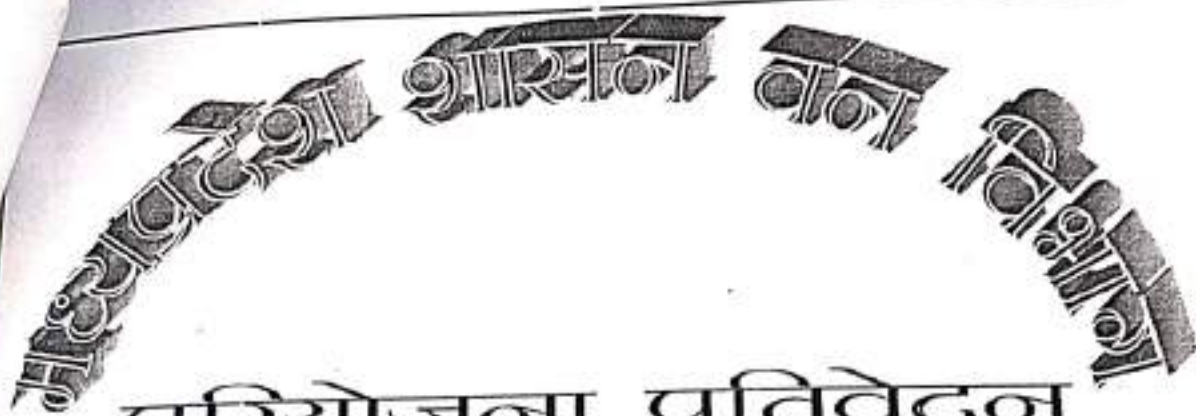 मध्यप्रदेश शासन वन विभाग
परियोजना प्रतिवेदन